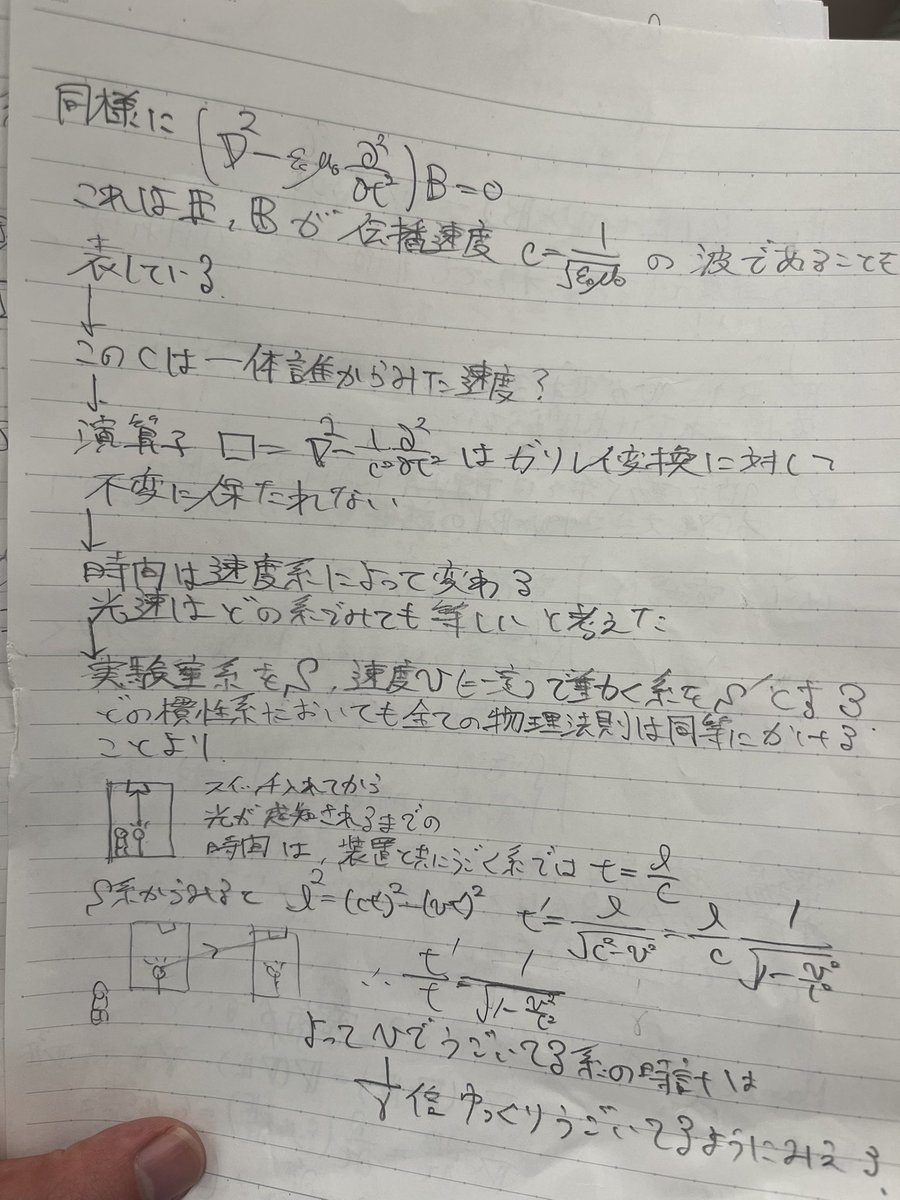 同様に (∇² − ε₀μ₀ ∂²/∂t²) B = 0
これは E, B が 伝播速度 c = 1/√ε₀μ₀ の 波であることを
表している.
↓
この c は 一体誰からみた速度?
↓
演算子 □ = ∇² − 1/c² ∂²/∂t² はガリレイ変換に対して
不変に保たれない
↓
時間は速度系によって変わる
光速はどの系でみても等しいと考えた
↓
実験室系をS, 速度v(=一定)で動く系をS'とする
どの慣性系においても全ての物理法則は同等にかける.
ことより
スイッチ入れてから
光が感知されるまでの
時間は, 装置と共にうごく系では t = l/c
S系からみると l² = (ct)² − (vt)² t' = l/√c²−v² = l/c 1/√1−v²/c²
∴ t'/t = 1/√1−v²/c²
よって vでうごいてる系の時計は
1/γ 倍ゆっくりうごいてるようにみえる.